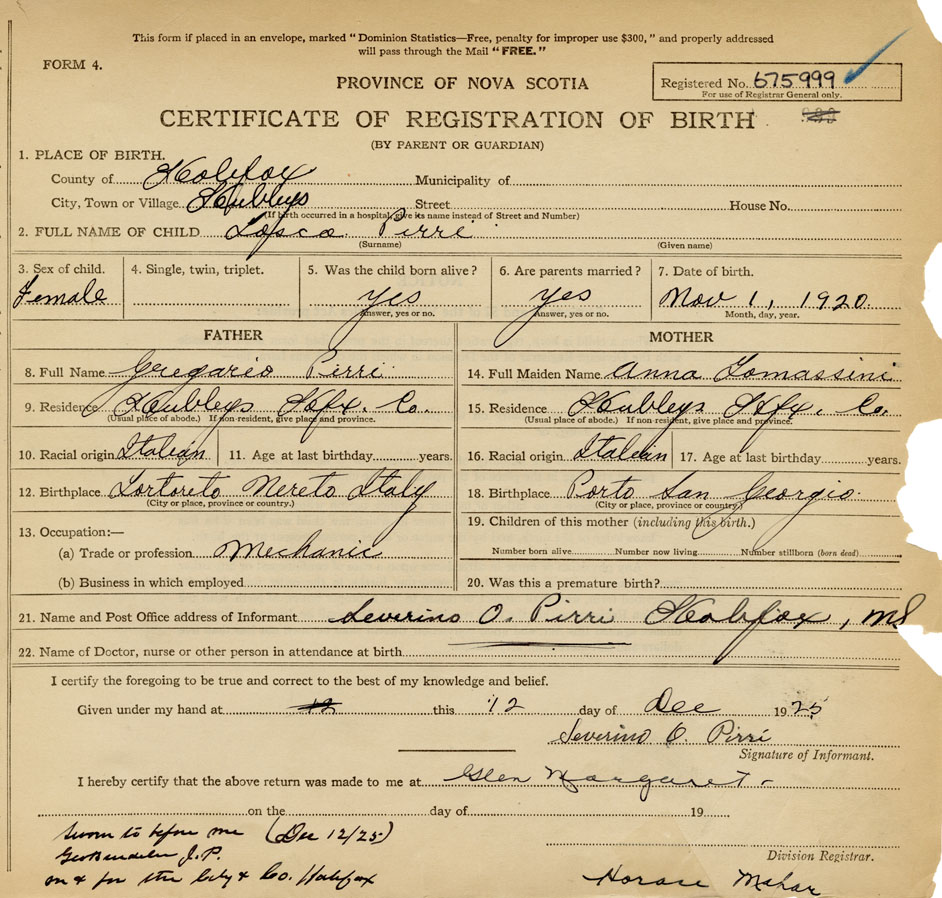 This form if placed in an envelope, marked "Dominion Statistics—Free, penalty for improper use $300," and properly addressed
will pass through the Mail "FREE."
FORM 4.
PROVINCE OF NOVA SCOTIA
Registered No. 675999
For use of Registrar General only.
CERTIFICATE OF REGISTRATION OF BIRTH
(BY PARENT OR GUARDIAN)
1. PLACE OF BIRTH.
County of Halifax Municipality of
City, Town or Village Hubleys Street House No.
(If birth occurred in a hospital, give its name instead of Street and Number)
2. FULL NAME OF CHILD Pirri
(Surname) (Given name)
3. Sex of child. 4. Single, twin, triplet. 5. Was the child born alive? 6. Are parents married? 7. Date of birth.
Female yes yes Nov 1, 1920.
Answer, yes or no. Answer, yes or no. Month, day, year.
FATHER MOTHER
8. Full Name Gregario Pirri 14. Full Maiden Name Anna Tomassini
9. Residence Hubleys Hfx. Co. 15. Residence Hubleys Hfx. Co.
(Usual place of abode.) If non-resident, give place and province. (Usual place of abode.) If non-resident, give place and province.
10. Racial origin Italian 11. Age at last birthday years. 16. Racial origin Italian 17. Age at last birthday years.
12. Birthplace Tortoreto Nereto Italy 18. Birthplace Porto San Georgio.
(City or place, province or country.) (City or place, province or country.)
13. Occupation:— 19. Children of this mother (including this birth.)
(a) Trade or profession Mechanic Number born alive Number now living Number stillborn (born dead)
(b) Business in which employed 20. Was this a premature birth?
21. Name and Post Office address of Informant Severino O. Pirri Halifax, NS
22. Name of Doctor, nurse or other person in attendance at birth
I certify the foregoing to be true and correct to the best of my knowledge and belief.
Given under my hand at 12 this 12 day of Dec 1925
Severino O. Pirri
Signature of Informant.
I hereby certify that the above return was made to me at Glen Margaret.
on the day of 19
Sworn to before me (Dec 12/25)
J.P.
Division Registrar.
in & for the City & Co. Halifax
Horace Mahar